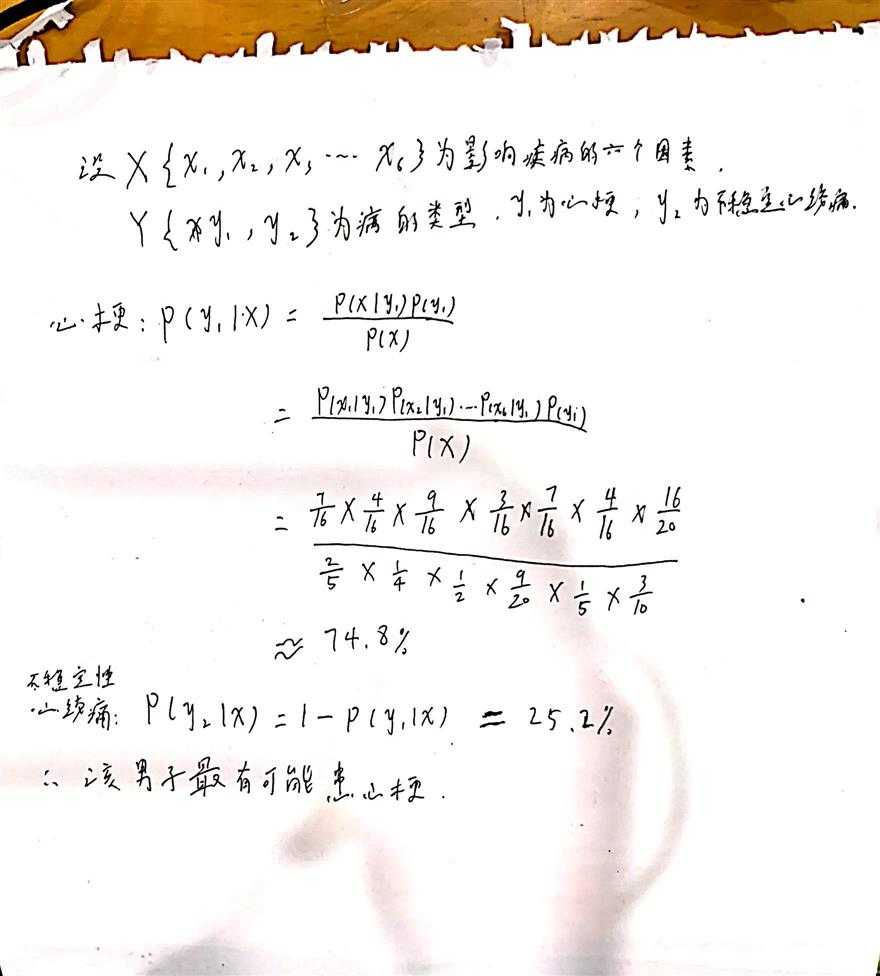 设 X{x₁,x₂,x₃ ... x₆}为影响疾病的六个因素.
Y{y₁,y₂}为病的类型. y₁为心梗; y₂为不稳定心绞痛.
心梗: P(y₁|X) = P(X|y₁)P(y₁) / P(X)
= P(x₁|y₁)P(x₂|y₁)...P(x₆|y₁)P(y₁) / P(X)
= 7/16 × 4/16 × 9/16 × 3/16 × 7/16 × 4/16 × 16/20
2/5 × 1/4 × 1/2 × 9/20 × 1/5 × 3/10
≈ 74.8%
不稳定性
心绞痛: P(y₂|X) = 1 - P(y₁|X) = 25.2%
∴ 该男子最有可能患心梗.